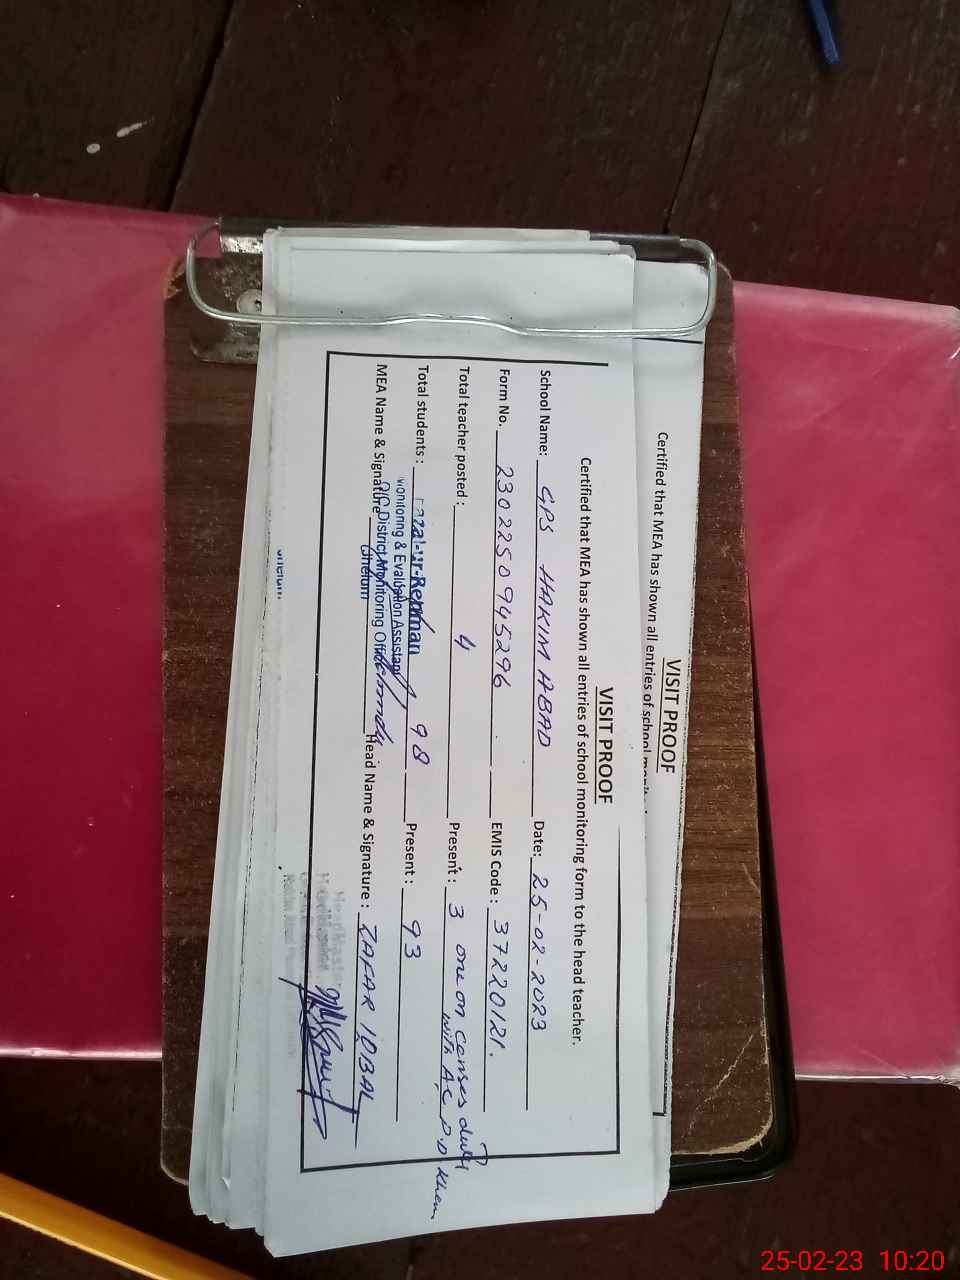 VISIT PROOF
Certified that MEA has shown all entries of school
VISIT PROOF
Certified that MEA has shown all entries of school monitoring form to the head teacher.
School Name: GPS HAKIM ABAD Date: 25-02-2023
Form No. 2302250945296 EMIS Code: 37220121.
Total teacher posted: 4 Present: 3 one on census duty
with AC P.D Khan
Total students: 98 Present: 93
MEA Name & Signature Head Name & Signature: ZAFAR IQBAL
Fazal-ur-Rehman
Monitoring & Evaluation Assistant
O/O District Monitoring Officer
Jhelum
HeadMaster
Jhelum
25-02-23 10:20